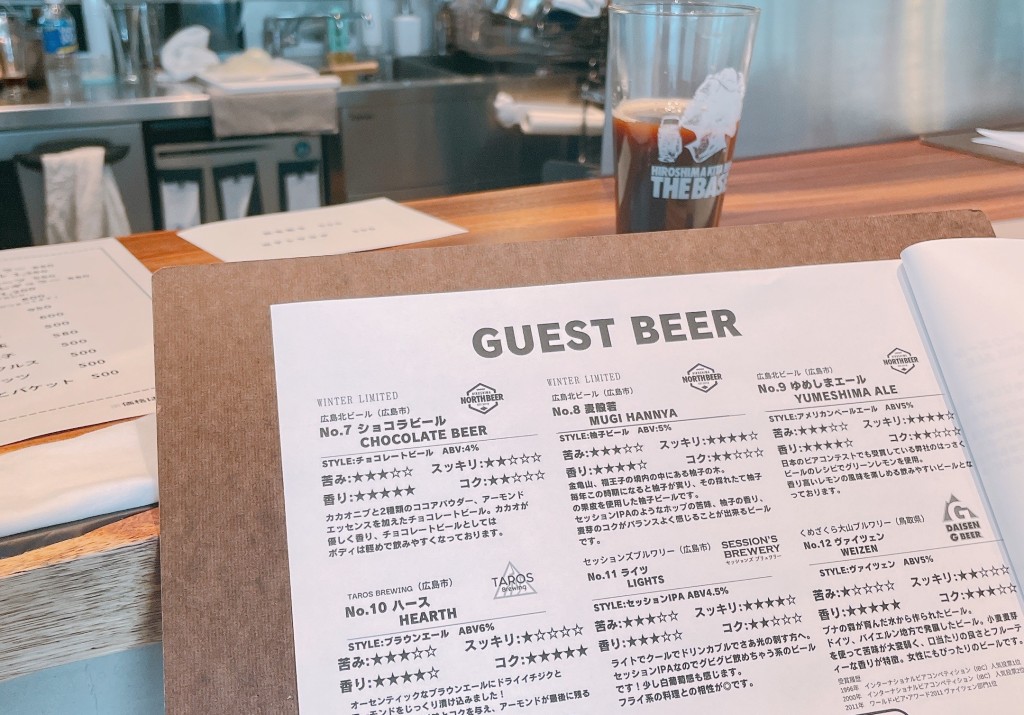 HIROSHIMA
THE BASE
580
600
500
580
500
500
500
バケット 500
GUEST BEER
WINTER LIMITED
広島北ビール（広島市）
NORTHBEER
No.7 ショコラビール
CHOCOLATE BEER
STYLE:チョコレートビール ABV:4%
苦み:★★★☆☆ スッキリ:★★☆☆☆
香り:★★★★★ コク:★★☆☆☆
カカオニブと2種類のココアパウダー、アーモンド
エッセンスを加えたチョコレートビール。カカオが
優しく香り、チョコレートビールとしては
ボディは軽めで飲みやすくなっております。
WINTER LIMITED
広島北ビール（広島市）
NORTHBEER
No.8 麦般若
MUGI HANNYA
STYLE:柚子ビール ABV:5%
苦み:★★★☆☆ スッキリ:★★★★☆
香り:★★★★☆ コク:★★☆☆☆
金亀山、福王子の境内の中にある柚子の木。
毎年この時期になると柚子が実り、その採れたて柚子
の果皮を使用した柚子ビールです。
セッションIPAのようなホップの苦味、柚子の香り、
麦芽のコクがバランスよく感じることが出来るビール
です。
広島北ビール（広島市）
NORTHBEER
No.9 ゆめしまエール
YUMESHIMA ALE
STYLE:アメリカンペールエール ABV5%
苦み:★★★☆☆ スッキリ:★★★★
香り:★★★★☆ コク:★★☆☆
日本のビアコンテストでも受賞している弊社のはっさく
ビールのレシピでグリーンレモンを使用。
香り高いレモンの風味を楽しめる飲みやすいビールとな
っております。
TAROS BREWING（広島市）
TAROS
Brewing
No.10 ハース
HEARTH
STYLE:ブラウンエール ABV6%
苦み:★★★★☆ スッキリ:★☆☆☆☆
香り:★★★★☆ コク:★★★★★
オーセンティックなブラウンエールにドライイチジクと
アーモンドをじっくり漬け込みました！
コクを与え、アーモンドが最後に残る
セッションズブルワリー（広島市）
SESSION'S
BREWERY
セッションズ ブリュワリー
No.11 ライツ
LIGHTS
STYLE:セッションIPA ABV4.5%
苦み:★★★☆☆ スッキリ:★★★★☆
香り:★★★★☆ コク:★★☆☆☆
ライトでクールでドリンカブルでさあ光の刺す方へ。
セッションIPAなのでグビグビ飲めちゃう系のビール
です！少し白葡萄感も感じます。
フライ系の料理との相性が◎です。
くめざくら大山ブルワリー（鳥取県）
DAISEN
G BEER
No.12 ヴァイツェン
WEIZEN
STYLE:ヴァイツェン ABV5%
苦み:★☆☆☆☆ スッキリ:★★☆☆☆
香り:★★★★★ コク:★★★☆☆
ブナの森が育んだ水から作られたビール。
ドイツ、バイエルン地方で発展したビール。小麦麦芽
を使って苦味が大変弱く、口当たりの良さとフルーテ
ィーな香りが特徴。女性にもぴったりのビールです。
受賞履歴
1996年 インターナショナルビアコンペティション（IBC）人気投票1位
2000年 インターナショナルビアコンペティション（IBC）人気投票2位
2011年 ワールド・ビア・アワード2011 ヴァイツェン部門1位